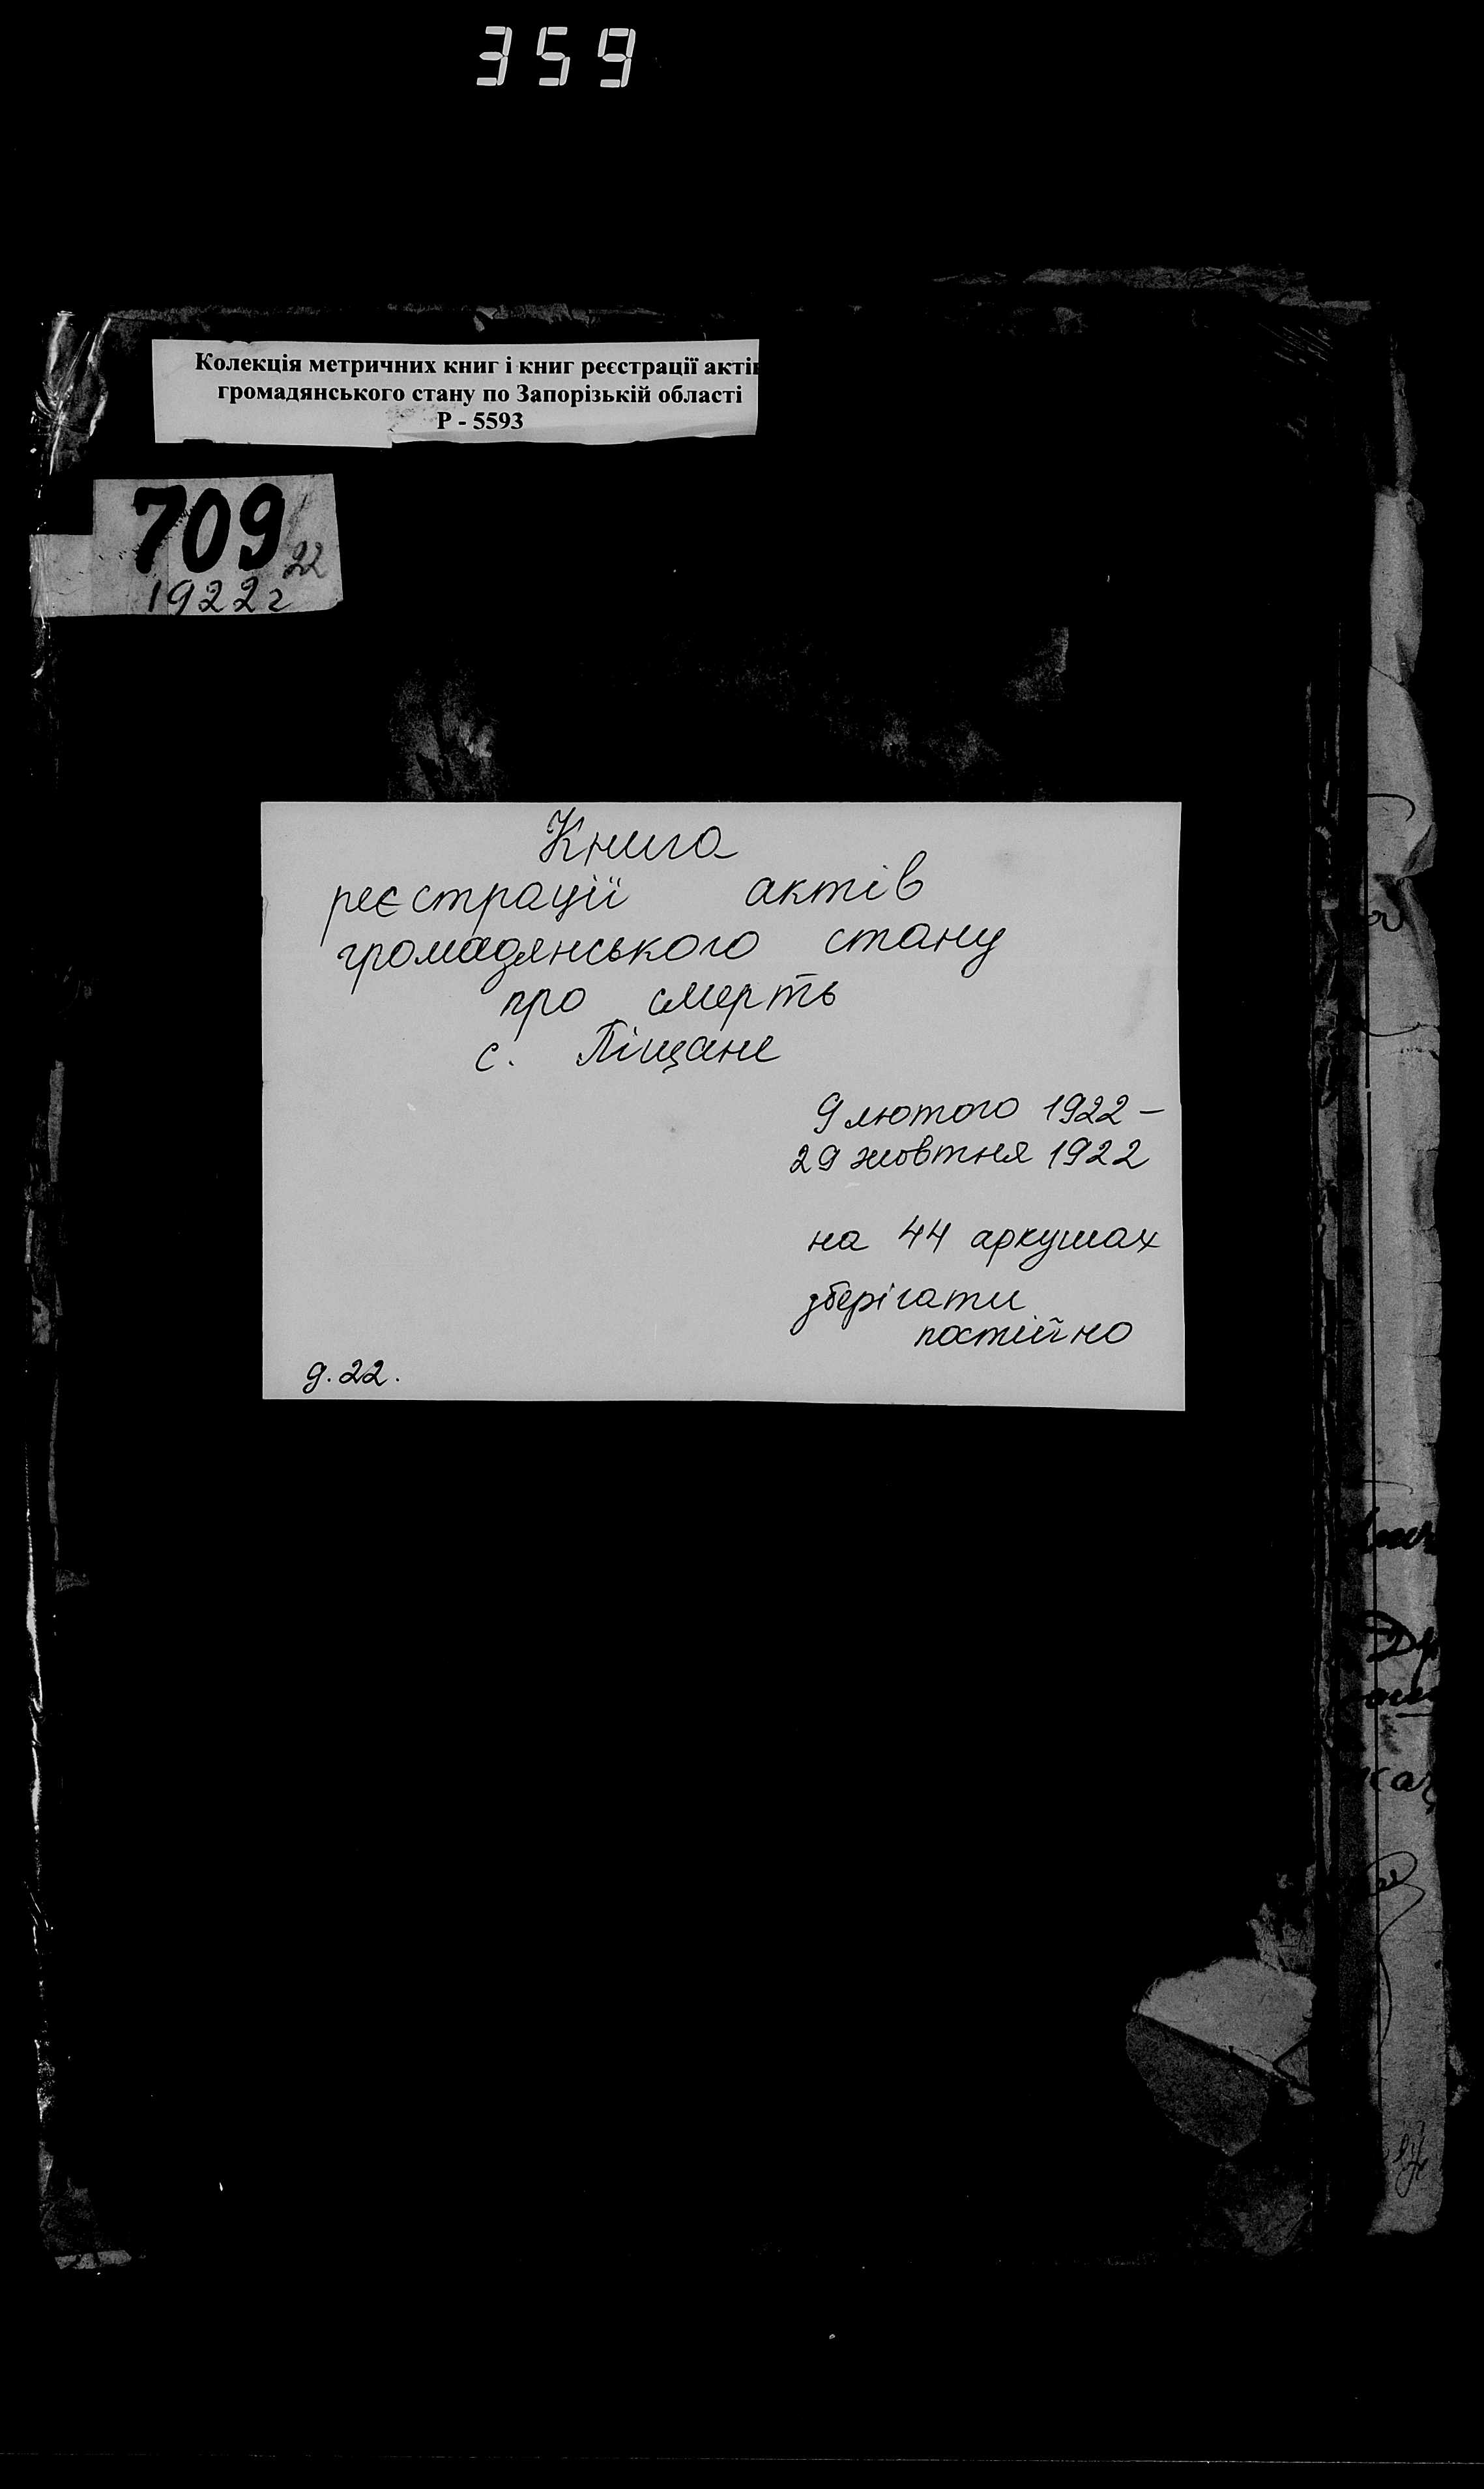 359
Колекція метричних книг і книг реєстрації актів
громадянського стану по Запорізькій області
Р - 5593
709
22
1922 г
Книга
реєстрації актів
громадянського стану
про смерть
с. Піщане
9 лютого 1922 –
29 жовтня 1922
на 44 аркушах
зберігати
постійно
д. 22.